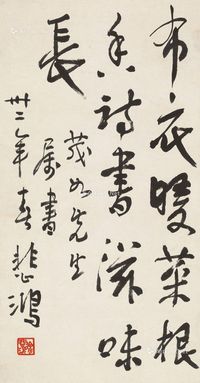 布衣暖菜根
香詩書滋味
長
茂如先生
属書
卅二年春
悲鴻